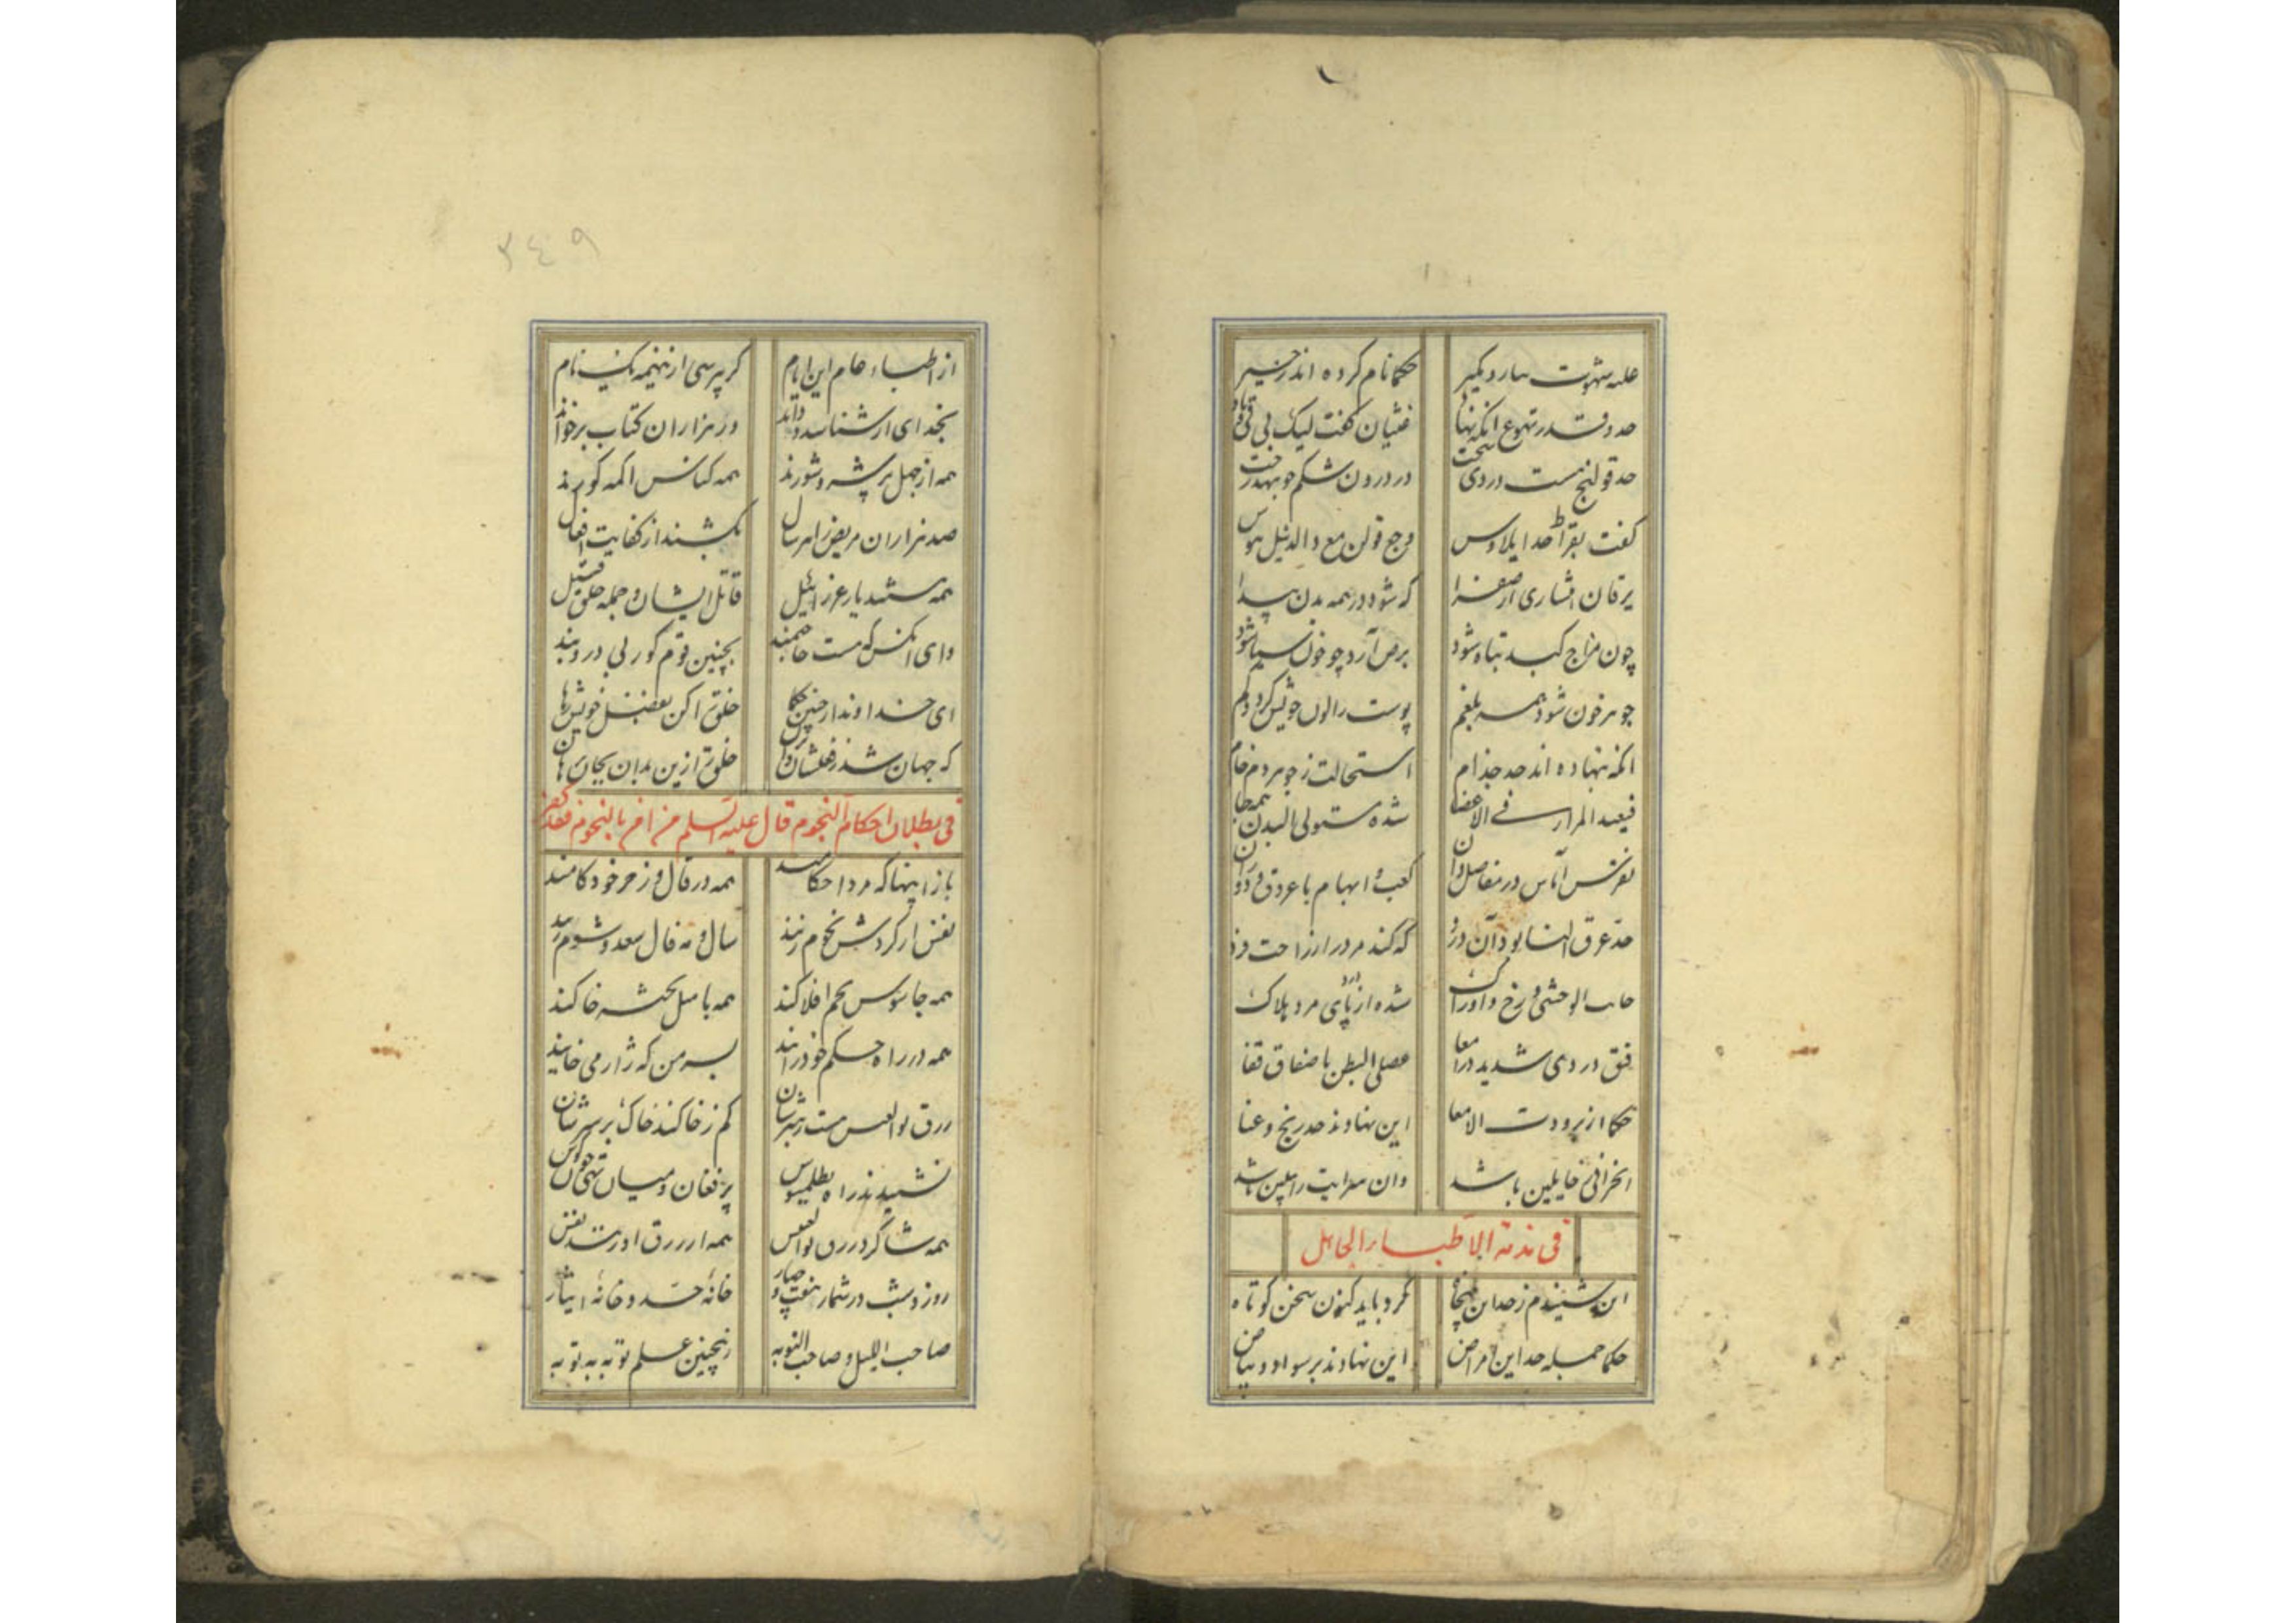 علت شهوت بسار دیگیر حکما نام کرده اند زحیر
حد و قدر تهوع آنکه نهاد غثیان گفت لیک بی قی و باد
حد قولنج هست دردی سخت در درون شکم چو بهدرخت
گفت بقراط حد ایلاوس وجع قولن مع
یرقان انتشاری از صفرا که شود در همه بدن پیدا
چون مزاج کبد تباه شود برص آرد چو خون سیاه شود
جوهر خون شود همه بلغم پوست را لون خویش کرد و کم
آنکه بنهاده اند حد جذام استحالت ز جوهر دم خام
فیعید المرار فی الاعضا شده مستولی البدن همه جا
نقرس آماس در مفاصل دان کعب و ابهام با عروق در و دان
حد عرق النسا بود آن درد که کند مرد را ز راحت فرد
جانب الوحشی و رخ و اوراک شده از درد پای مرد هلاک
فتق دردی شدید در امعا البطن با صفاق قفا
حکما از برودت الامعا این نهادند حد رنج و عنا
انحرافی باشد وان باشد
فی مذمة الاطباء الجاهل
این شنیدم ز حد این کرد باید کنون سخن کوتاه
حکما جمله حد این امراض این نهادند بر سواد و بیاض
از اطباء عام این ایام گر بپرسی ازینهمه یک نام
بخدای ار شناسد و داند ور هزاران کتاب برخواند
همه از جهل پر شر و شورند همه کناس اکمه کورند
صد هزاران مریض را هر سال بکشند از کفایت افعال
همه هستند یار عزرائیل قاتل ایشان و جمله خلق قتیل
وای آنکس که هست حاجتمند بچنین قوم کور بی در و بند
ای خداوند ازچنین حکما خلق را کن بفضل خویش رها
که جهان شد ز فعلشان ویران خلق را زین بدان بجان برهان
فی بطلان احکام النجوم قال علیه السلم من امن بالنجوم فقد کفر
باز اینها که مرد احکامند همه در فال و زجر خود کامند
نفس از گردش نجوم زنند سال و مه فال سعد و شوم زنند
همه جاسوس نجم افلاکند همه با میل خاکند
همه در راه حکم خود رانند بسر من که ژاژ می خایند
زرق بوالعبس هست رهبرشان کم ز خاکند خاک بر سرشان
نشنیدند راه بطلمیوس پر فغان و میان تهی چون کوس
همه شاگرد زرق بوالعبس همه از زرق او زنند نفس
روز و شب در شمار هفت و چهار خانهٔ حد و خانهٔ ایثار
صاحب اللیل و صاحب النوبه زینچنین علم توبه به توبه
۳٤۹